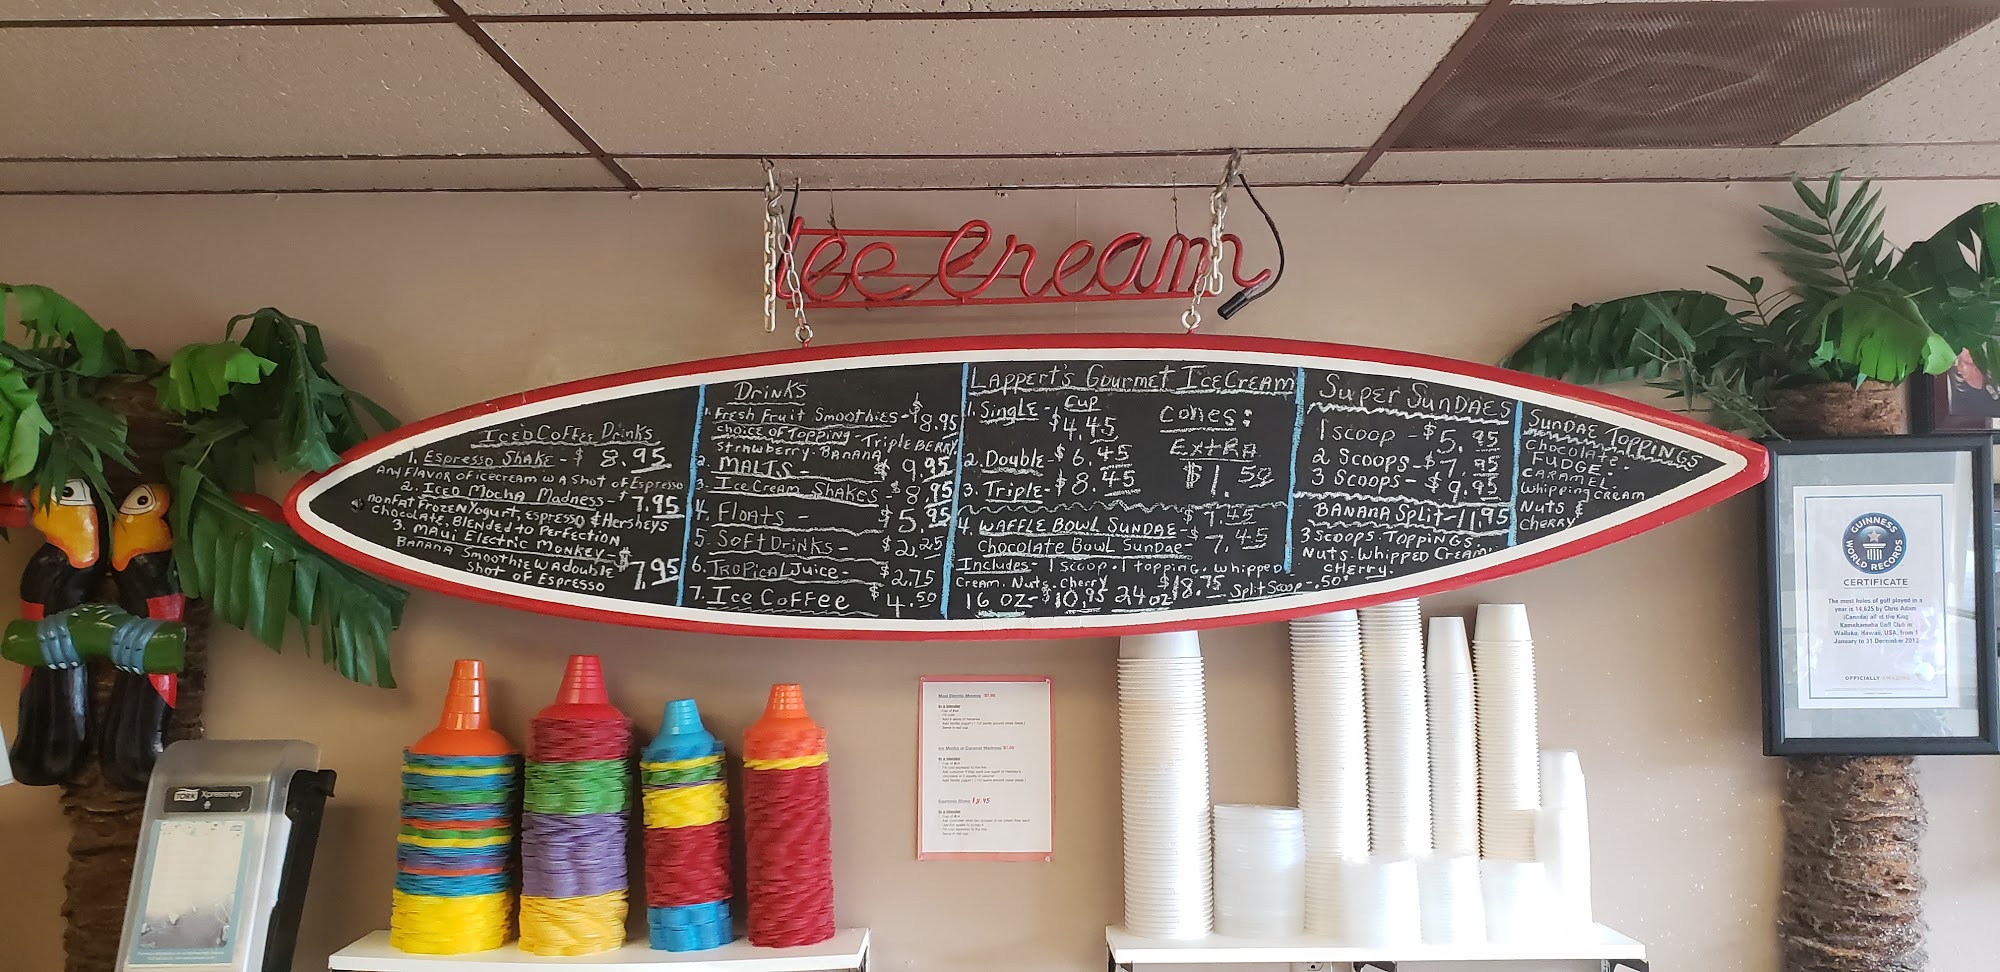 Ice Cream
Iced Coffee Drinks
1. Espresso Shake - $8.95
Any Flavor of icecream w A Shot of Espresso
2. Iced Mocha Madness - $7.95
nonfat Frozen Yogurt, Espresso & Hersheys
chocolate, Blended to Perfection
3. Maui Electric Monkey - $7.95
Banana Smoothie w A double
Shot of Espresso
Drinks
1. Fresh Fruit Smoothies - $8.95
choice of Topping - Triple Berry,
Strawberry. Banana
2. Malts - $9.95
3. Ice Cream Shakes - $8.95
4. Floats - $5.95
5. Soft Drinks - $2.25
6. Tropical Juice - $2.75
7. Ice Coffee $4.50
Lappert's Gourmet Ice Cream
Cup
1. Single - $4.45
2. Double - $6.45
3. Triple - $8.45
Cones:
Extra
$1.50
4. Waffle Bowl Sundae - $7.45
Chocolate Bowl Sundae - 7.45
Includes - 1 scoop. 1 topping. Whipped
Cream. Nuts. Cherry
16 oz - $10.95 24 oz $18.75 Split Scoop - .50¢
Super Sundaes
1 Scoop - $5.95
2 Scoops - $7.95
3 Scoops - $9.95
Banana Split - 11.95
3 Scoops. Toppings.
Nuts. Whipped Cream.
Cherry.
Sundae Toppings
Chocolate.
Fudge.
Caramel.
Whipping Cream
Nuts &
Cherry
GUINNESS
WORLD RECORDS
CERTIFICATE
The most holes of golf played in a
year is 14,625 by Chris Adam
(Canada) all at the King
Kamehameha Golf Club in
Wailuku, Hawaii, USA, from 1
January to 31 December 2012
OFFICIALLY AMAZING
TORK Xpressnap
Maui Electric Monkey $7.95
In a blender
Ice Mocha or Caramel Madness $7.95
In a blender
Espresso Shake
In a blender